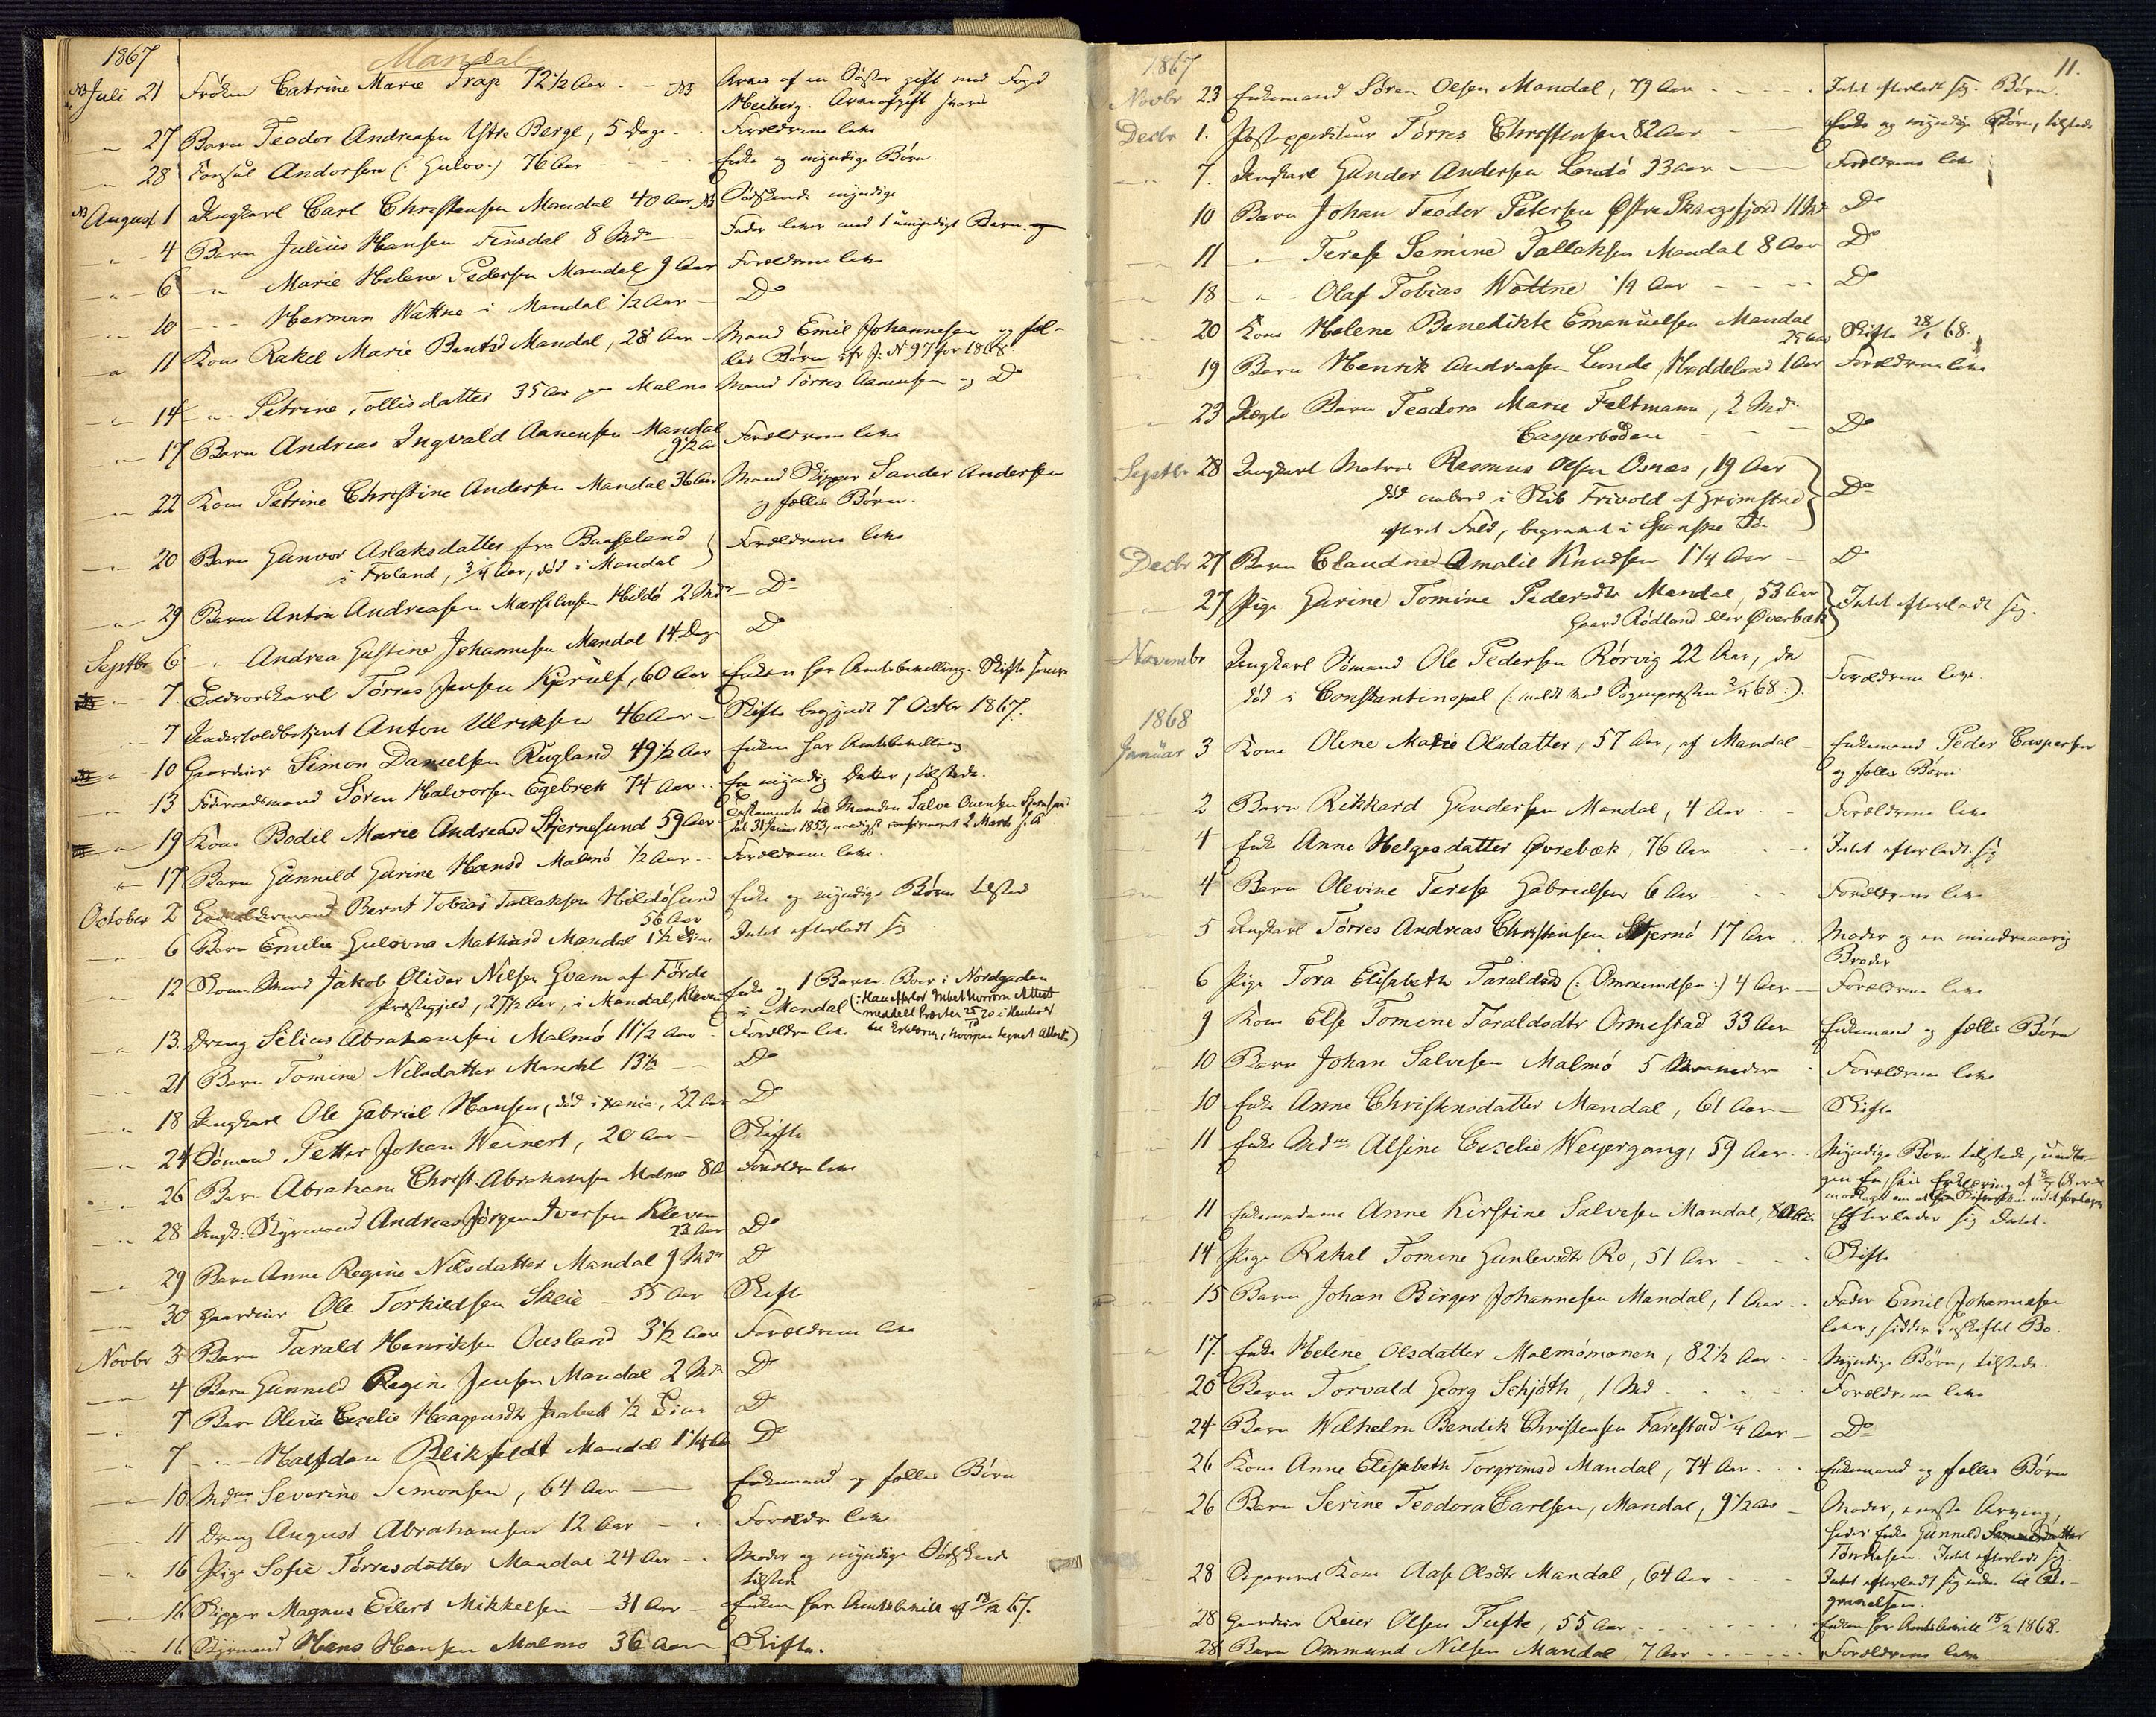 1867
Mandal
NB Juli 21 Frøken Catrine Marie Trap 72 1/2 Aar NB Arves af en Søster gift med Foged
Heiberg. Arveafgift svares
27 Barn Teodor Andreasen Ystre Berge, 5 Dage Forældrene leve
28 Consul Andorsen (: Gulov :) 76 Aar Enke og myndige Børn.
NB August 1 Ungkarl Carl Christensen Mandal 40 Aar NB Sødskende myndige
4 Barn Julius Hansen Finsdal 8 Mdr Fader lever med 1 umyndigt Barn
6 " Marie Helene Pedersen Mandal 9 Aar Forældrene leve
10 " Herman Wattne i Mandal 1/2 Aar Do
11 Kone Rakel Marie Bentsd Mandal, 28 Aar Mand Emil Johannesen og fæl-
les Børn cfr J: N 97 for 1868.
14 " Petrine Tollisdatter 35 Aar paa Malmø Mand Tørres Aanensen og Do
17 Barn Andreas Ingvald Aanensen Mandal Forældrene leve
9 1/2 Aar
22 Kone Petrine Christine Andersen Mandal 36 Aar Mand Skipper Sander Andersen
og fælles Børn.
20 Barn Gunvor Aslaksdatter fra Baaseland Forældrene leve
i Froland, 3/4 Aar, død i Mandal
29 Barn Anton Andreasen Hildø 2 Mdr Do
Septbr 6 " Andrea Gustine Johannesen Mandal 14 Dage Do
7. Tørres Jensen Kjerulf, 60 Aar Enken har Amtsbevilling. Skifte
7 UnderToldbetjent Anton Ulriksen 46 Aar Skifte begyndt 7 Octbr 1867.
10 Gaardmr Simon Danielsen Rugland 49 1/2 Aar Enken har Amtsbevilling
13 Føderaadsmand Søren Halvorsen Egebrek 74 Aar En myndig Datter, tilstede.
19 Kone Bodil Marie Andreasd Stjernesund 59 Aar Testamente til Manden Salve Ouensen
dat 31 Januar 1853, confirmeret 2 Marts s. A
17 Barn Gunnild Gurine Hansd Malmø 1/2 Aar Forældrene leve.
October 2 Berent Tobias Tallaksen Hildøsund Enke og myndige Børn tilstede
56 Aar
6 Barn Emilie Gulovna Mathiasd Mandal 1 1/2 Intet efterladt sig
12 Jakob Olivar Nilsen Gvam af Førde Enke og 1 Barn. Boer i Nordgaden
Præstegjeld, 27 1/2 Aar, i Mandal, Kleven i Mandal
13. Dreng Silius Abrahamsen Malmø 11 1/2 Aar Forældre leve
21 Barn Tomine Nilsdatter Mandal 13 1/2 Do
18 Ungkarl Ole Gabriel Hansen, død i Xania, 22 Aar Do
24 Sømand Petter Johan Weinert, 20 Aar Skifte
26 Barn Abraham Christ. Abrahamsen Malmø 8 Forældre leve
28 Ungk: Styrmand Andreas Jørgen Iversen Kleven Do
23 Aar
29 Barn Anne Regine Nilsdatter Mandal 9 Mdr Do
30 Gaardmr Ole Torkildsen Skeie 55 Aar Skifte
Novbr 3 Barn Tarald Henriksen Ousland 3 1/2 Aar Forældrene leve
4 Barn Gunnild Regine Jensen Mandal 2 Mdr Do
7 Barn Olivia Cecelie Haagensdtr 1/2 Do
7 " Halfdan Blikfeldt Mandal 1 1/4 Aar Do
10 Mdme Severine Simonsen, 64 Aar Enkemand og fælles Børn
11 Dreng August Abrahamsen 12 Aar Forældre leve
16 Pige Sofie Tørresdatter Mandal 24 Aar Moder og myndige Sødskende
tilstede
16 Skipper Magnus Eilert Mikkelsen 31 Aar Enken har Amtsbevill af 18/12 67.
16 Styrmand Hans Hansen Malmø 36 Aar Skifte.
1867
11.
Novbr 23 Enkemand Søren Olsen Mandal, 79 Aar Intet efterladt sig. Børn.
Decbr 1. Postexpediteur Tørres Christensen 82 Aar Enke og myndige Børn, tilstede
7. Ungkarl Gunder Andersen Landø 23 Aar Forældrene leve
10 Barn Johan Teodor Petersen Østre Skogsfjord 11 Mdr Do
11 " Terese Semine Tallaksen Mandal 8 Aar Do
18 " Olaf Tobias Wattne 1/4 Aar Do
20 Kone Helene Benedikte Emanuelsen Mandal Skifte 28/1 68.
25 Aar
19 Barn Henrik Andreasen Lunde, Haddeland 1 Aar Forældrene leve
23 Barn Teodora Marie Feltmann, 2 Mdr
Casperboden Do
Septbr 28 Ungkarl Matros Rasmus Olsen Osnæs, 19 Aar
død ombord i Skib Frivold af Grimstad Do
efter et Fald, begravet i Spanske
Decbr 27 Barn Claudine Amalie Knudsen 1 1/4 Aar Do
27 Pige Gurine Tomine Pedersdtr Mandal, 53 Aar Intet efterladt sig.
Gaard Rødland eller Øverbæk
Novembr Ungkarl Sømand Ole Pedersen Rørvig 22 Aar, Forældrene leve.
død i Constantinopel (: meldt ved Sognepræsten 2/1 68 :).
1868
Januar 3 Kone Oline Marie Olsdatter, 57 Aar, af Mandal Enkemand Peder Caspersen
og fælles Børn
2 Barn Rikkard Gundersen Mandal, 4 Aar Forældrene leve
4 Enke Anne Helgesdatter Øvrebæk, 76 Aar Intet efterladt sig
4 Barn Olevine Terese Gabrielsen 6 Aar Forældrene leve
5 Ungkarl Tørres Andreas Christensen Stjernø 17 Aar Moder og en mindreaarig
Broder
6 Pige Tora Elisabeth Taraldsd (: Ommundsen :) 4 Aar Forældrene leve
9 Kone Else Tomine Taraldsdtr Ormestad 33 Aar Enkemand og fælles Børn
10 Barn Johan Salvesen Malmø 5 Forældrene leve
10 Enke Anne Christensdatter Mandal, 61 Aar Skifte
11 Enke Mdme Alsine Cecelie Weyergang, 59 Aar Myndige Børn tilstede, undta-
gen En, hvis Erklæring af
11 Enkemadame Anne Kirstine Salvesen Mandal, 80 Aar Efterlader sig Intet.
14 Pige Rakel Tomine Gunlevsdtr Ro, 51 Aar Skifte
15 Barn Johan Birger Johannesen Mandal, 1 Aar Fader Emil Johannesen
lever, sidder i uskiftet Bo.
17 Enke Helene Olsdatter Malmømonen, 82 1/2 Aar Myndige Børn, tilstede.
20 Barn Torvald Georg Schjøth, 1 Md Forældrene leve
24 Barn Wilhelm Bendik Christensen Farestad 1/4 Aar Do
26 Kone Anne Elisabeth Torgrimsd Mandal, 74 Aar Enkemand og fælles Børn
26 Barn Serine Teodora Carlsen, Mandal, 9 1/2 Aar Moder, eneste Arving,
heder Enke Gunnild
Intet efterladt sig.
28 Separeret Kone Aase Olsdtr Mandal, 64 Aar Intet efterladt sig uden til Be-
gravelsen.
28 Gaardmr Reier Olsen Tufte, 55 Aar Enken har Amtsbevill 15/2 1868.
28 Barn Ommund Nilsen Mandal 7 Aar Forældrene leve